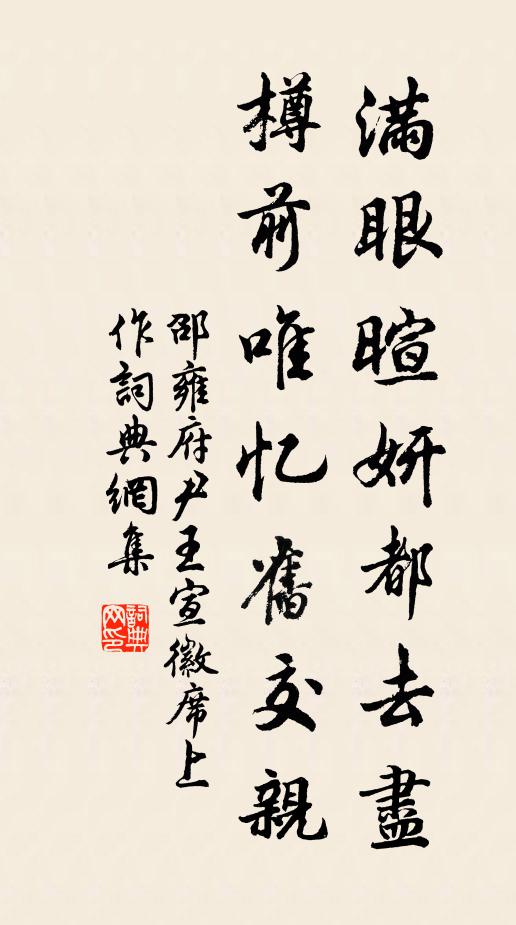 滿眼暄妍都去盡
樽前唯忆舊交親
邵雍府尹王宣徽席上
作詞典網集
詞典
网印